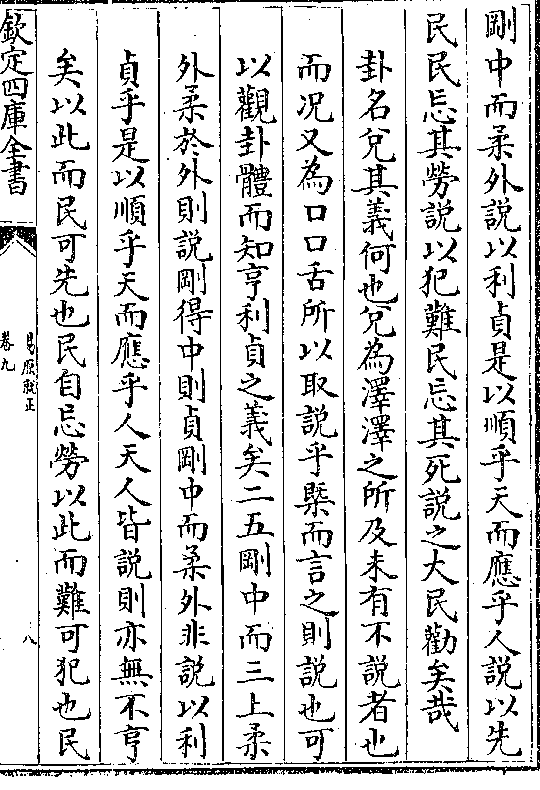 剛中而柔外說以利貞是以順乎天而應乎人說以先
民民忘其勞說以犯難民忘其死說之大民勸矣哉
卦名兌其義何也兌為澤澤之所及未有不說者也
而况又為口口舌所以取說乎槩而言之則說也可
以觀卦體而知亨利貞之義矣二五剛中而三上柔
外柔於外則說剛得中則貞剛中而柔外非說以利
貞乎是以順乎天而應乎人天人皆說則亦無不亨
矣以此而民可先也民自忘勞以此而難可犯也民
欽定四庫全書
易原就正
卷九
八